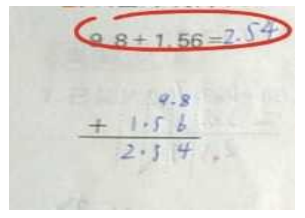 9.8+1.56=2.54
9.8
+ 1.56
2.54